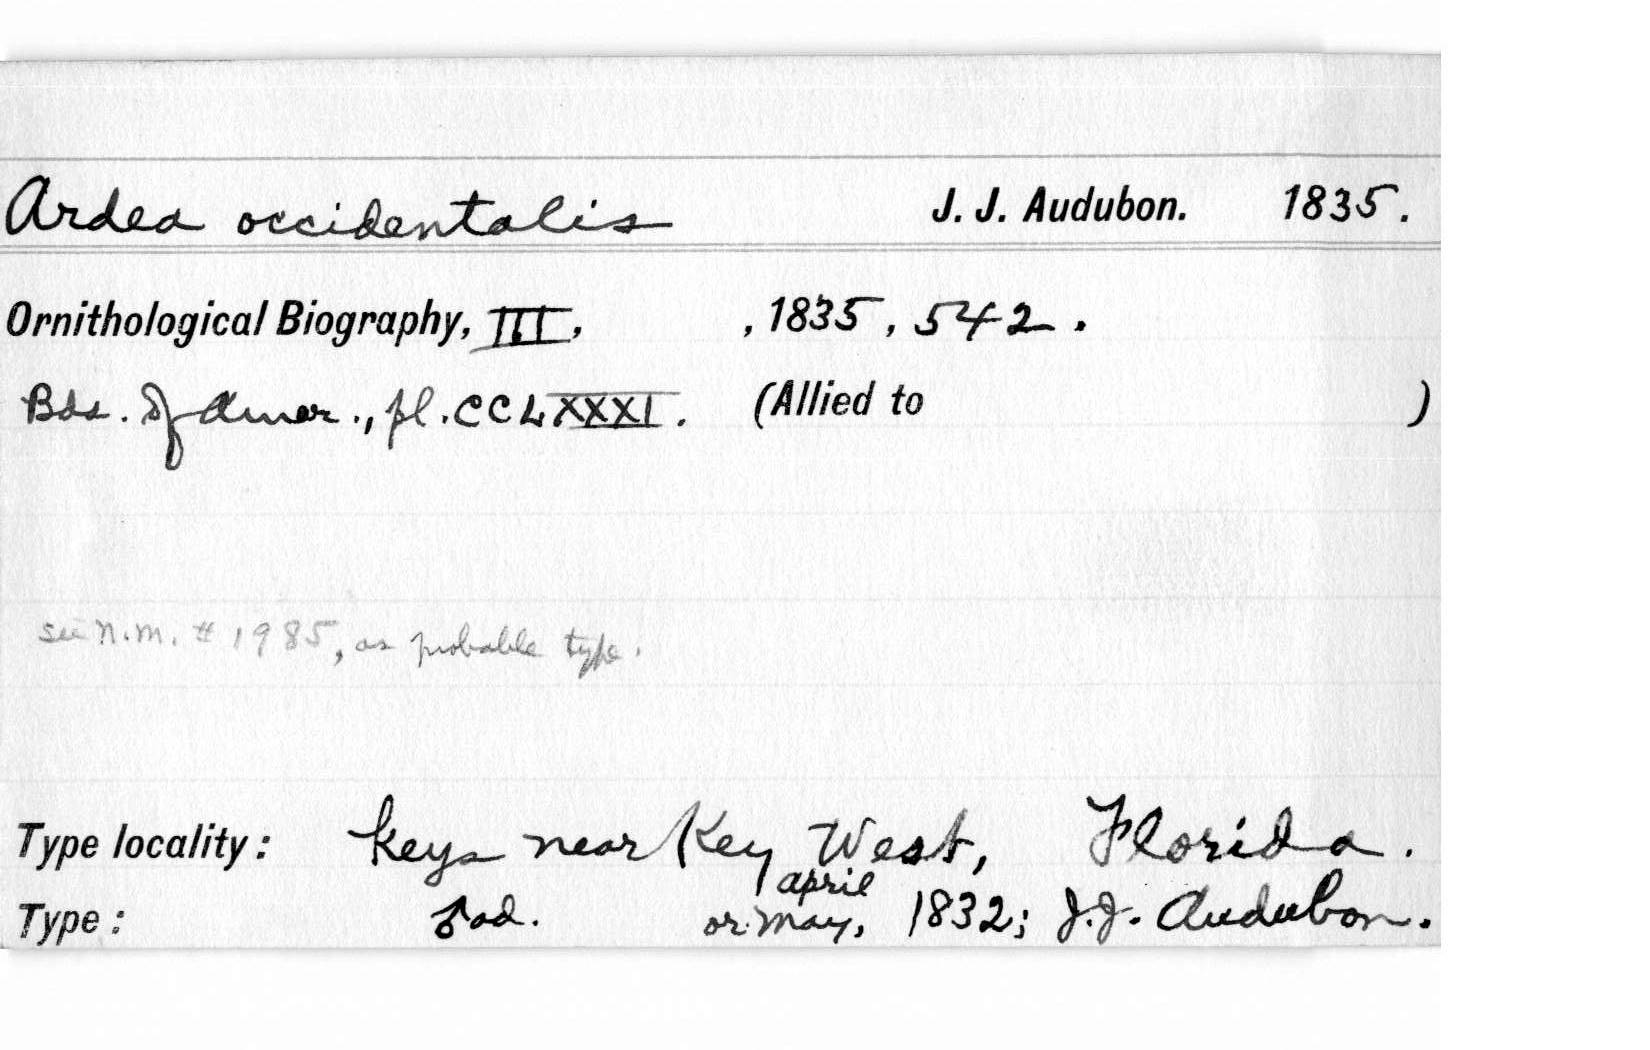 Ardea occidentalis J. J. Audubon. 1835.
Ornithological Biography, III, , 1835, 542.
Bds. of Amer., pl. CCLXXXI. (Allied to )
see N.M. # 1985, as probable type.
Type locality: Keys near Key West, Florida.
Type: ♂ ad. april or May, 1832; J.J. Audubon.